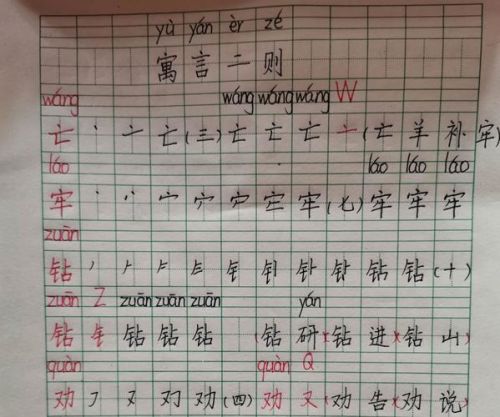 yù yán èr zé
寓言二则
wáng wáng wáng wáng W
亡 丶 亠 亡 (三) 亡 亡 亡 亠 (亡 羊 补 牢)
láo láo láo láo
牢 丶 丷 宀 牢 (七) 牢 牢 牢
zuān
钻 丿 钻 钻 (十)
zuān Z zuān zuān zuān yán
钻 钅 钻 钻 钻 (钻 研)(钻 进)(钻 山)
quàn quàn Q
劝 フ 又 劝 劝 (四) 劝 又 (劝 告)(劝 说)